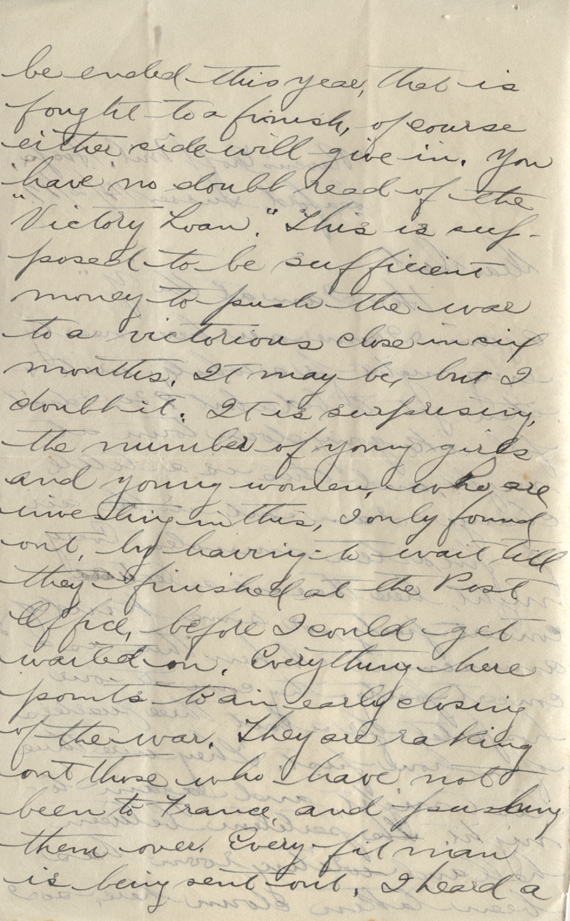 be ended this year, that is
fought to a finish, of course
either side will give in. You
have no doubt read of the
"Victory Loan." This is sup-
posed to be sufficient
money to push the war
to a victorious close in six
months. It may be, but I
doubt it. It is surprising,
the number of young girls
and young women, who are
investing in this, I only found
out, by having to wait till
they finished at the Post
Office, before I could get
waited on. Everything here
points to an early closing
of the war. They are raking
out those who have not
been to France, and pushing
them over. Every fit man
is being sent out. I heard a